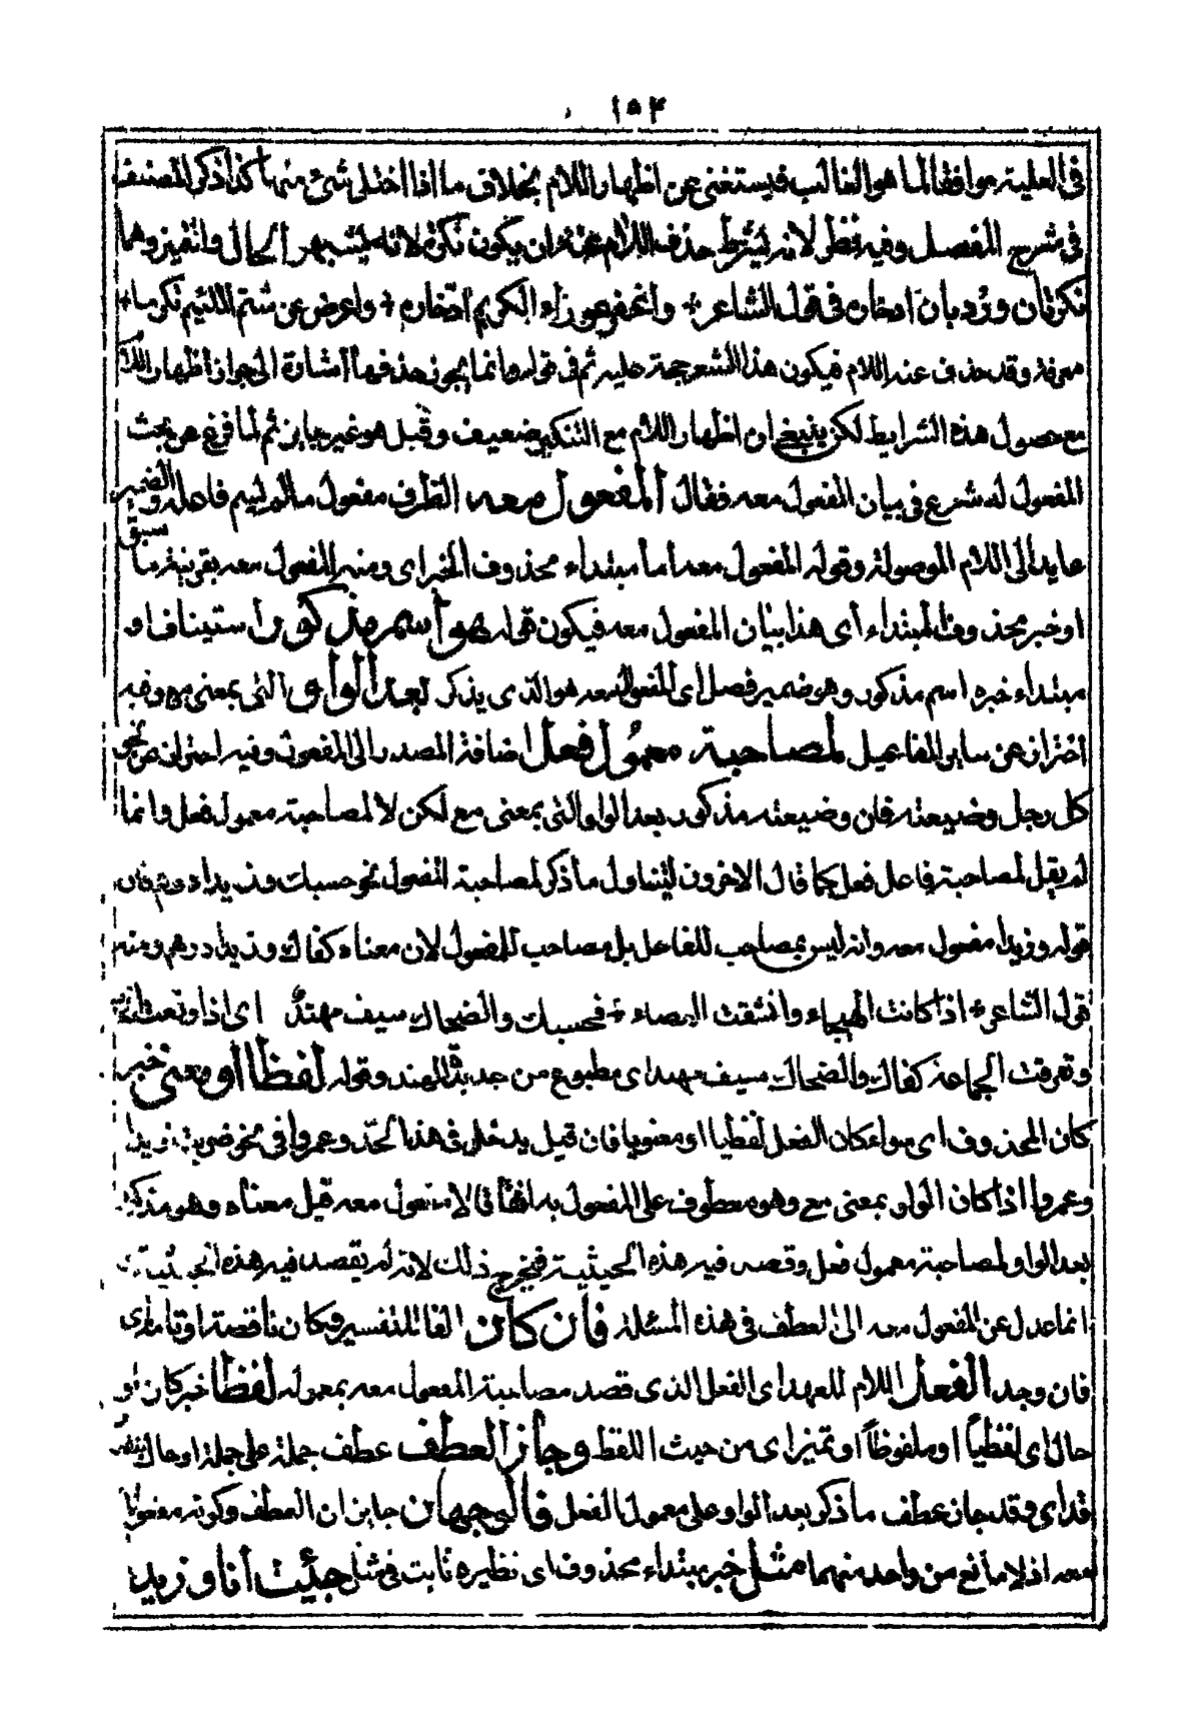 ١٥٣
فى العلية موافقا لما هو الغالب فيستغنى عن اظهار اللام بخلاف ما اذا اختل شئ منها كذا ذكر المصنف
فى شرح المفصل وفيه نظر لانه يشترط حذف اللام عنه ان يكون نكرة لانه يشبه الحال والتميز وهما
نكرتان ورُد بان ادخاره فى قول الشاعر + واغفر عوراء الكريم ادخاره + واعرض عن شتم اللئيم تكرما +
معرفة وقد حذف عنه اللام فيكون هذا الشعر حجة عليه ثم فى قوله وانما يجوز حذفها اشارة الى جواز اظهار اللام
مع حصول هذه الشرايط لكن ينبغى ان اظهار اللام مع التنكير ضعيف وقيل هو غير جايز ثم لما فرغ عن بحث
المفعول له شرع فى بيان المفعول معه فقال المفعول معه الظرف مفعول مالم يسم فاعله والضمير
عايد الى اللام الموصولة وقوله المفعول معه اما مبتداء محذوف الخبر اى ومنه المفعول معه بقرينة ما سبق
او خبر محذوف المبتداء اى هذا بيان المفعول معه فيكون قوله هو اسم مذكور استينافا و
مبتداء خبره اسم مذكور وهو ضمير فصل اى المفعول معه هو الذى يذكر بعد الواو التى بمعنى مع وفيه
احتراز عن ساير المفاعيل لمصاحبة معمول فعل اضافة المصدر الى المفعول وفيه احتراز عن نحو
كل رجل وضيعته فان وضيعته مذكور بعد الواو التى بمعنى مع لكن لا لمصاحبة معمول فعل وانما
لم يقل لمصاحبة فاعل فعل كما قال الاخرون ليتناول ما ذكر لمصاحبة المفعول نحو حسبك وزيدا درهم فان
قوله وزيدا مفعول معه وانه ليس بمصاحب للفاعل بل مصاحب للمفعول لان معناه كفاك وزيدا درهم ومنه
قول الشاعر + اذا كانت الهيجاء وانشقت العصاء + فحسبك والضحاك سيف مهند اى اذا وقعت الفتنة
وتفرقت الجماعة كفاك والضحاك سيف مهند اى مطبوع من حديد الهند وقوله لفظا او معنى خبر
كان المحذوف اى سواء كان الفعل لفظيا او معنويا فان قيل يدخل فى هذا الحد وعمروا فى نحو ضربت زيدا
وعمروا اذا كان الواو بمعنى مع وهو معطوف على المفعول به اتفاقا لا مفعول معه قيل معناه وهو مذكور
بعد الواو لمصاحبة معمول فعل وقصد فيه هذه الحيثية فيخرج ذلك لانه لم يقصد فيه هذه الحيثية
انما عدل عن المفعول معه الى العطف فى هذه المسئلة فان كان الفاء للتفسير وكان ناقصة او تامة اى
فان وجد الفعل اللام للعهد اى الفعل الذى قصد مصاحبة المفعول معه بمعموله لفظا خبر كان او
حال اى لفظيًا او ملفوظًا او تميز اى من حيث اللفظ وجاز العطف عطف جملة على جملة او حال بتقدير
قد اى وقد جاز عطف ما ذكر بعد الواو على معمول الفعل فالوجهان جايزان العطف وكونه مفعولا
معه اذ لا مانع من واحد منهما مثل خبر مبتداء محذوف اى نظيره ثابت فى مثل جئت أنا وزيد